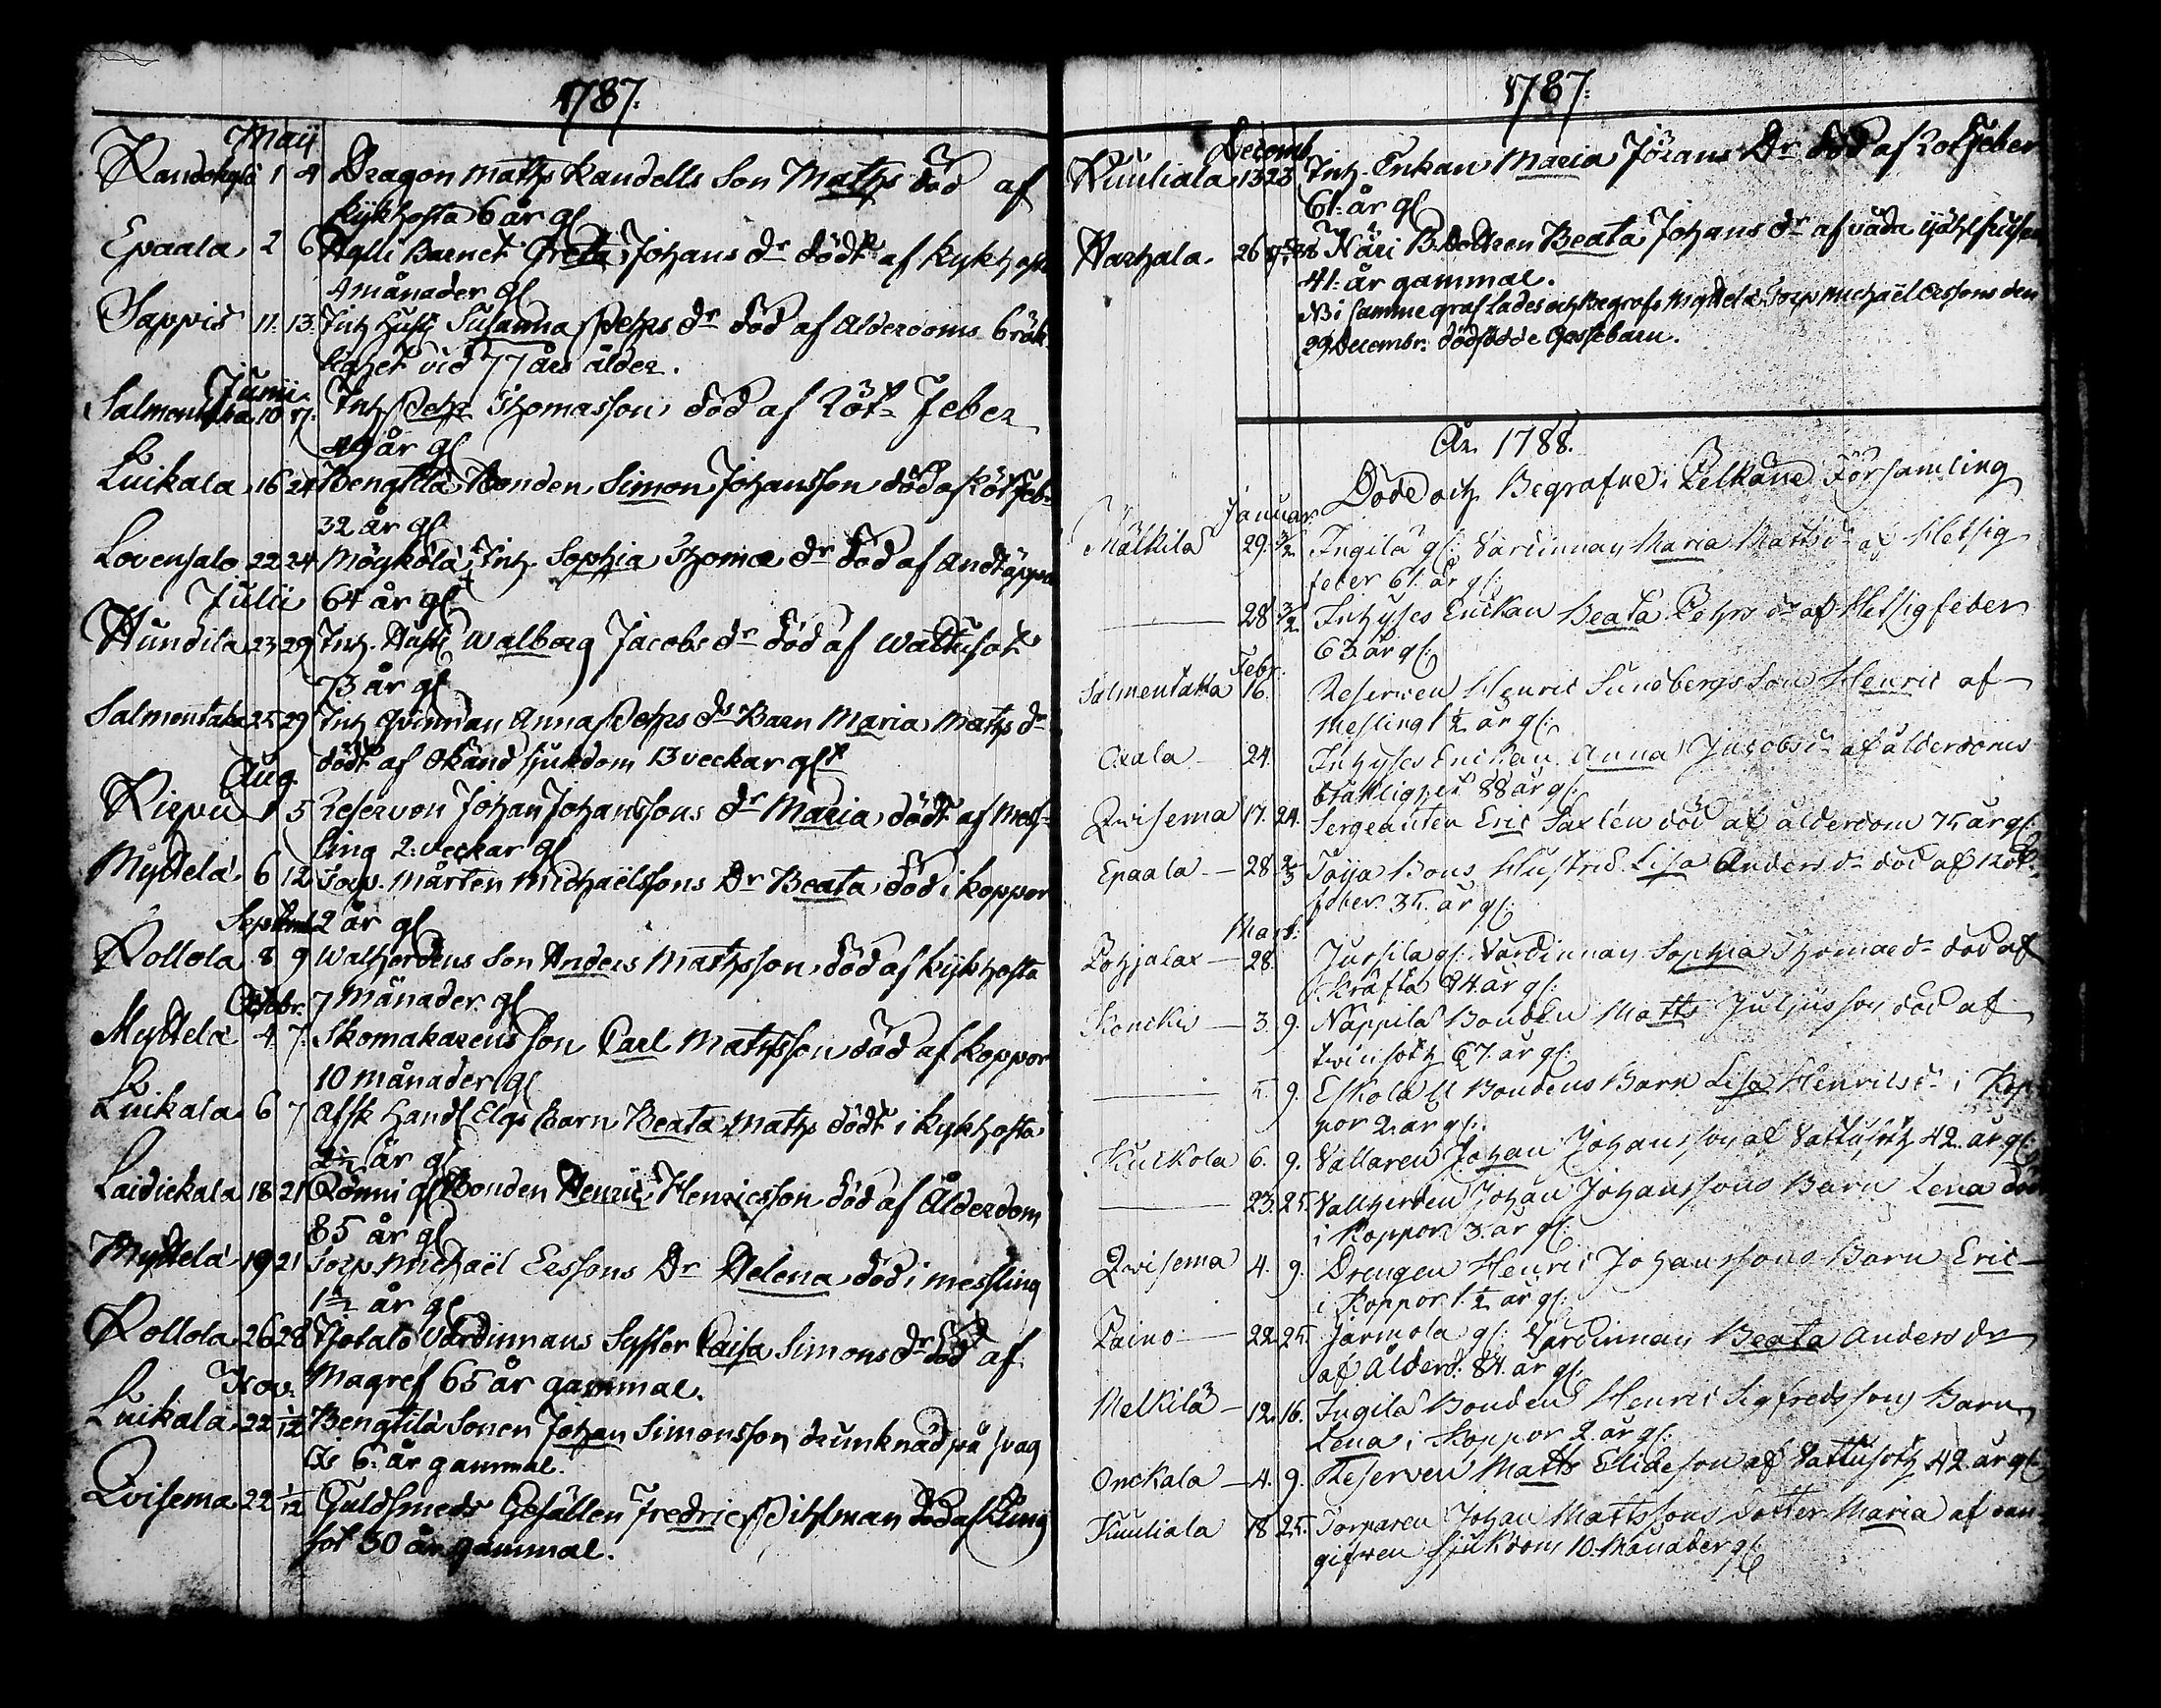 1787.
Maii
Kandokylä 1 4 Dragon Maths Kandells Son Maths död af
kykhosta 6 år gl
Epaala 2 6 Agli Barnet Greta Johans dr dödt af kykhosta
4 månader gl
Sappis 11. 13. Inh Hust Susanna Pehrs dr död af Alderdoms bräk
lighet vid 77 års ålder.
Junii
Salmentaka 10 17. Inh Pehr Thomasson död af Röt= Feber
49 år gl
Luikala 16 24 Bengtilä Bonden Simon Johansson död af Röt Feb=
32 år gl
Lovensalo 22 24 Möykölä Inh. Sophia Thomæ dr död af Andtäppa
Julii 64 år gl
Hundila 23 29 Inh. Hust Walborg Jacobs dr död af Wattusot
73 år gl
Salmentaka 25 29 Inh Qvinnan Anna Pehrs drs Barn Maria Maths dr
dödt af Okänd sjukdom 13 veckar glt
Aug.
Kirpu 1 5 Reserven Johan Johanssons dr Maria dödt af Mess=
ling 2. veckar gl
Myttelä 6 12 Torp. Mårten Michaëlssons Dr Beata död i koppor
Septemb. 2 år gl
Rollola 8 9 Walherdens Son Anders Mathsson död af kykhosta
Octobr. 7 Månader gl
Myttelä 4. 7. Skomakarens Son Carl Mathsson död af koppor
10 månader gl
Luikala 6 7 Afsk Handl Elgs Barn Beata Maths dödt i kykhosta
2½ år gl
Laidickala 18 21 Rönni gl Bonden Henric Henricsson död af Ålderdom
85 år gl
Myttelä 19 21 Torp. Michaël Erssons Dr Helena död i messling
1½ år gl
Rollola 26 28 Värdinnans Syster Caisa Simons dr död af
Nov. Magref 65 år gammal.
Luikala 22 1/12 Bengtilä Sonen Johan Simonsson drunknad på svag
Is 6. år gammal.
Qvisema 22 1/12 Guldsmeds Gesällen Fredric Pihlman död af Lung
sot 30 år gammal.
1787.
Decemb
Kuuliala 13 23 Inh. Enkan Maria Jörans Dr död af Rotfeber
61. år gl
Harhala. 26 Näri B. Dottren Beata Johans dr af våda
41. år gammal.
NB i samme graf lades och Begrofs Myttelä Torp Michaël Erssons den
29 Decembr. dödfödde Gossebarn.
År. 1788.
Döde och Begrafne i Pelkäne Församling
Januar.
Mälkilä 29. 3/2 Ingilä gl. Värdinnan Maria Matts dr af Hetsig
feber 61. år gl.
— 28 3/2 Inhyses Enckan Beata Pehrs dr af Hetsig feber
63 år gl.
Febr.
Salmentaka 16. Reserven Henric Sundbergs Son Henric af
Mesling 1½ år gl.
Oxala — 24. Inhyses Enckan Anna Jacobs dr af ålderdoms
bräcklighet 88 år gl.
Qwisema 17. 24. Sergeanten Eric Saxlén död af ålderdom 75 år gl.
Epaala — 28 2/3 Toija Bons Hustru Lisa Anders dr död af Röt=
feber. 35. år gl.
Mart.
Pohjalax — 28. Jussila gl. Värdinnan Sophia Thomæ dr död af
Kräfta 84 år gl.
Konckis — 3. 9. Näppilä Bonden Matts Juliusson död af
twinsoth 67. år gl.
— 5. 9. Eskola Bondens Barn Lisa Henrics dr i Kop
por 2. år gl.
Kuckola 6. 9. Vallaren Johan Johansson af Vattusoth 42. år gl.
— 23. 25. Vallherden Johan Johanssons Barn Lena död
i Koppor 3. år gl.
Qwisema 4. 9. Drengen Henric Johanssons Barn Eric —
i Koppor 1.½ år gl.
Paino — 22 25. Jarmola gl. Värdinnan Beata Anders dr
af Ålderd. 84. år gl.
Melkilä — 12. 16. Ingilä Bonden Henric Sigfredssons Barn
Lena i Koppor 2. år gl.
Onckala — 4. 9. Reserven Matts Elideson af Vattusoth 42 år gl.
Kuuliala 18 25. Torparen Johan Mattssons Dotter Maria af oan
gifwen sjukdom 10. Månader gl.